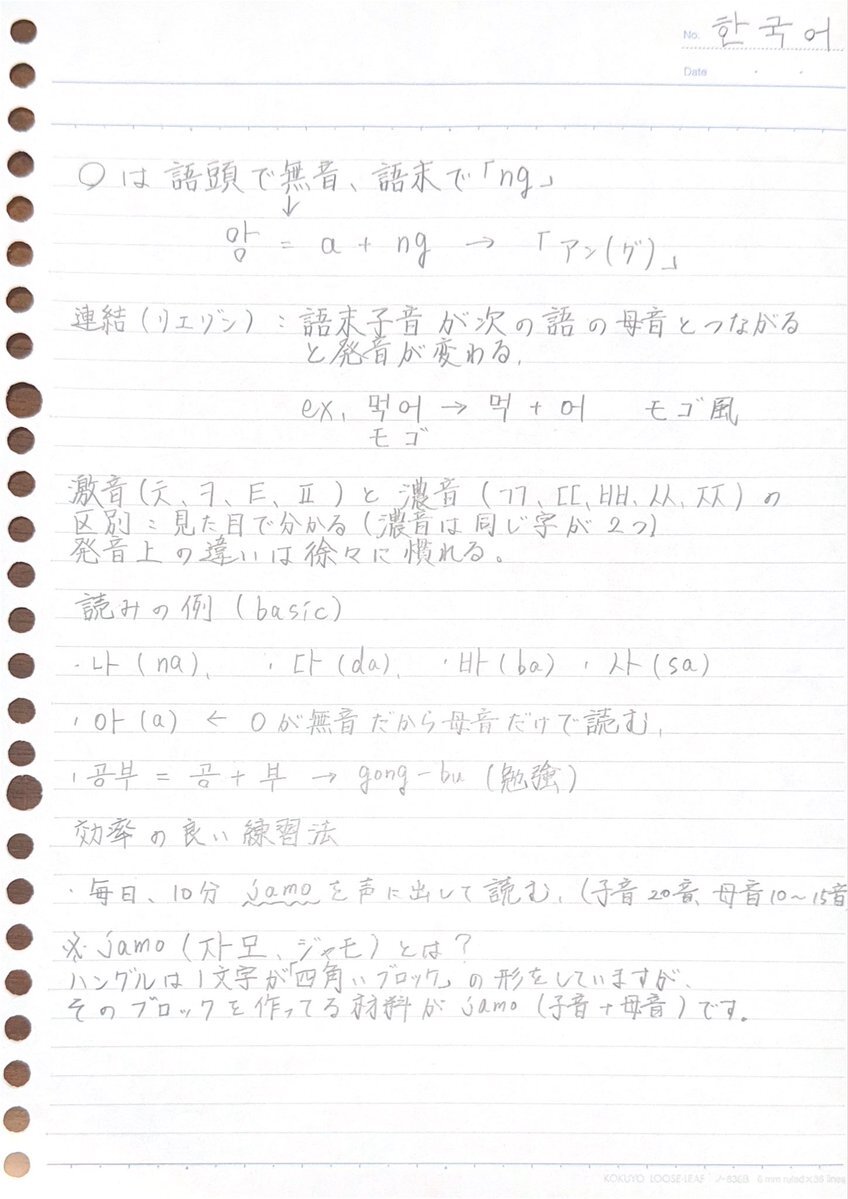 No. 한국어
Date ・ ・
○は語頭で無音、語末で「ng」
↓
앙 = a + ng → 「アン(グ)」
連結(リエゾン):語末子音が次の語の母音とつながる
と発音が変わる.
ex. 먹어 → 먹 + 어 モゴ風
モゴ
激音(ㅊ、ㅋ、ㅌ、ㅍ)と濃音(ㄲ、ㄸ、ㅃ、ㅆ、ㅉ)の
区別:見た目で分かる(濃音は同じ字が2つ)
発音上の違いは徐々に慣れる。
読みの例(basic)
・나(na). ・다(da). ・바(ba) ・사(sa)
・아(a) ← ○が無音だから母音だけで読む.
・공부 = 공 + 부 → gong-bu (勉強)
効率の良い練習法
・毎日、10分 jamoを声に出して読む.(子音20音、母音10〜15音
※ jamo(자모、ジャモ)とは?
ハングルは1文字が「四角いブロック」の形をしていますが、
そのブロックを作ってる材料がjamo(子音+母音)です。
KOKUYO LOOSE-LEAF ノ-836B 6 mm ruled×36 lines